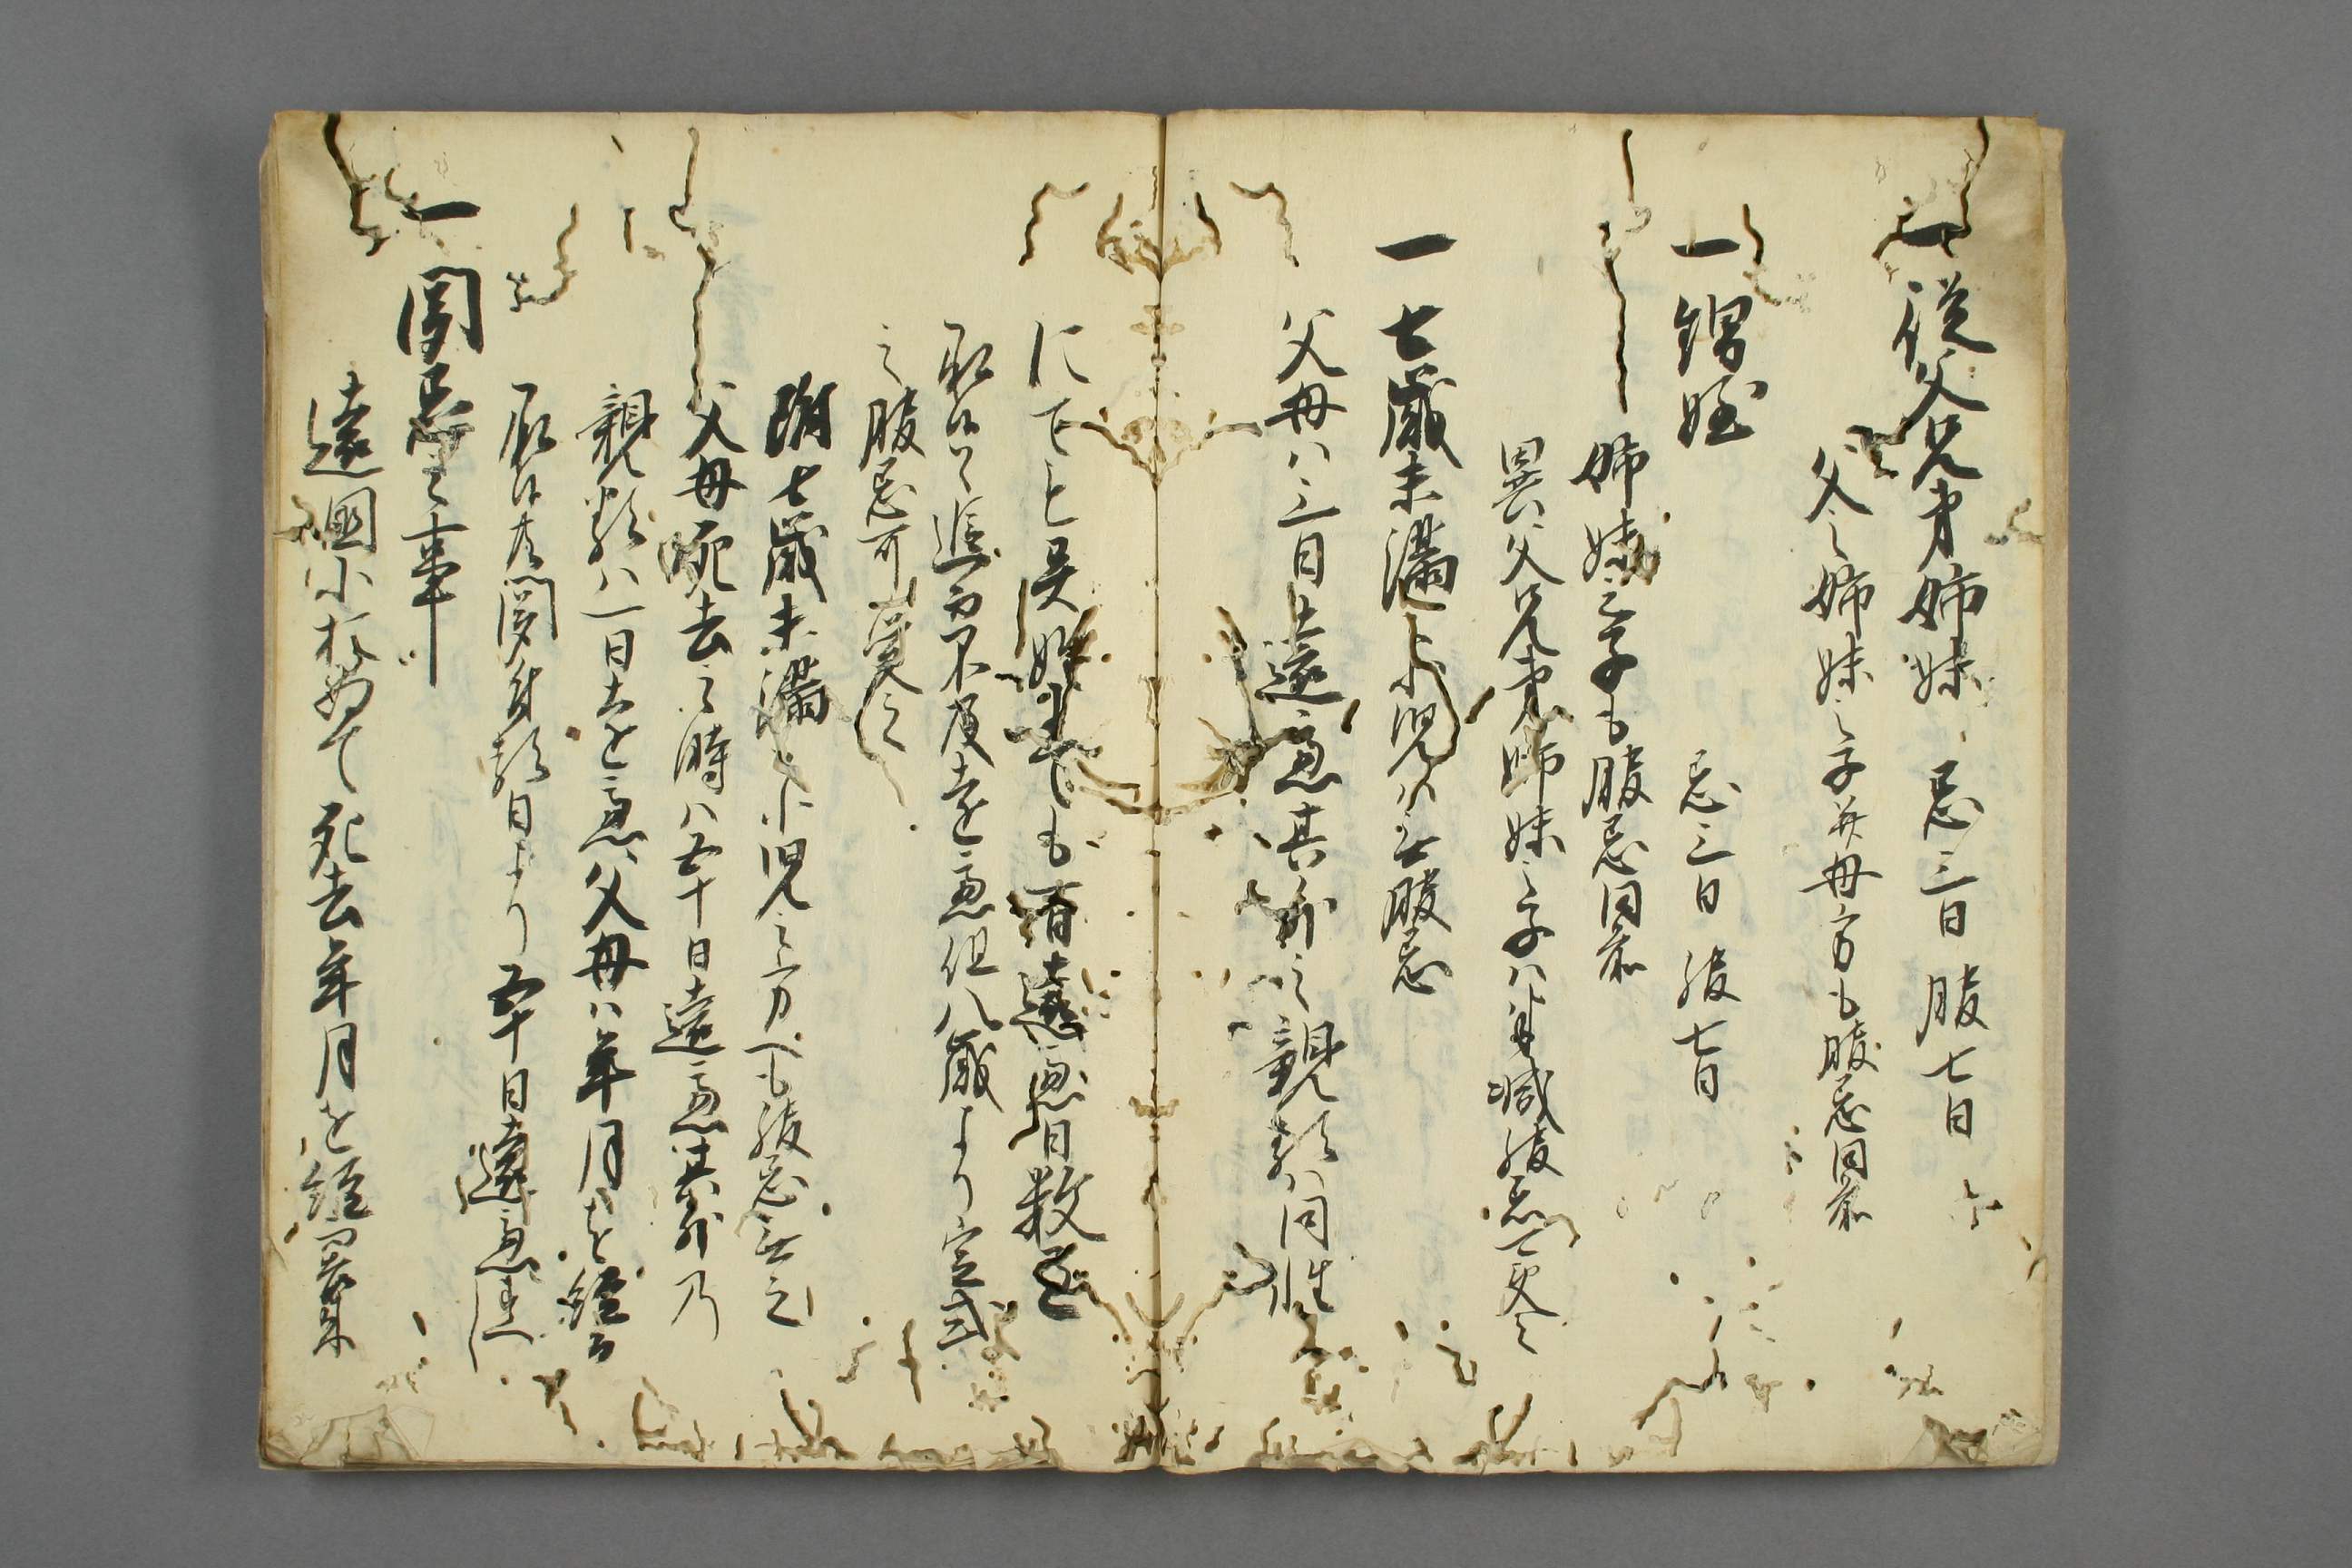 一 従父兄弟姉妹 忌三日 服七日
父之姉妹之子并母方も服忌同前
一 甥姪 忌三日 服七日
姉妹之子も服忌同前
異父兄弟姉妹之子ハ半減服忌可受之
一 七歳未満之小児ハ無服忌
父母ハ三日遠慮其外之親類ハ同姓
にても異姓にても一日遠慮日数過
承候ハヽ追而不及遠慮但八歳より定式
之服忌可受之
附七歳未満之小児之方へも服忌無之
父母死去之時ハ五十日遠慮其外乃
親類ハ一日遠慮父母ハ年月を経而
承候共聞付類日より五十日遠慮
一 聞忌之事
遠國におゐて死去年月を経而告来